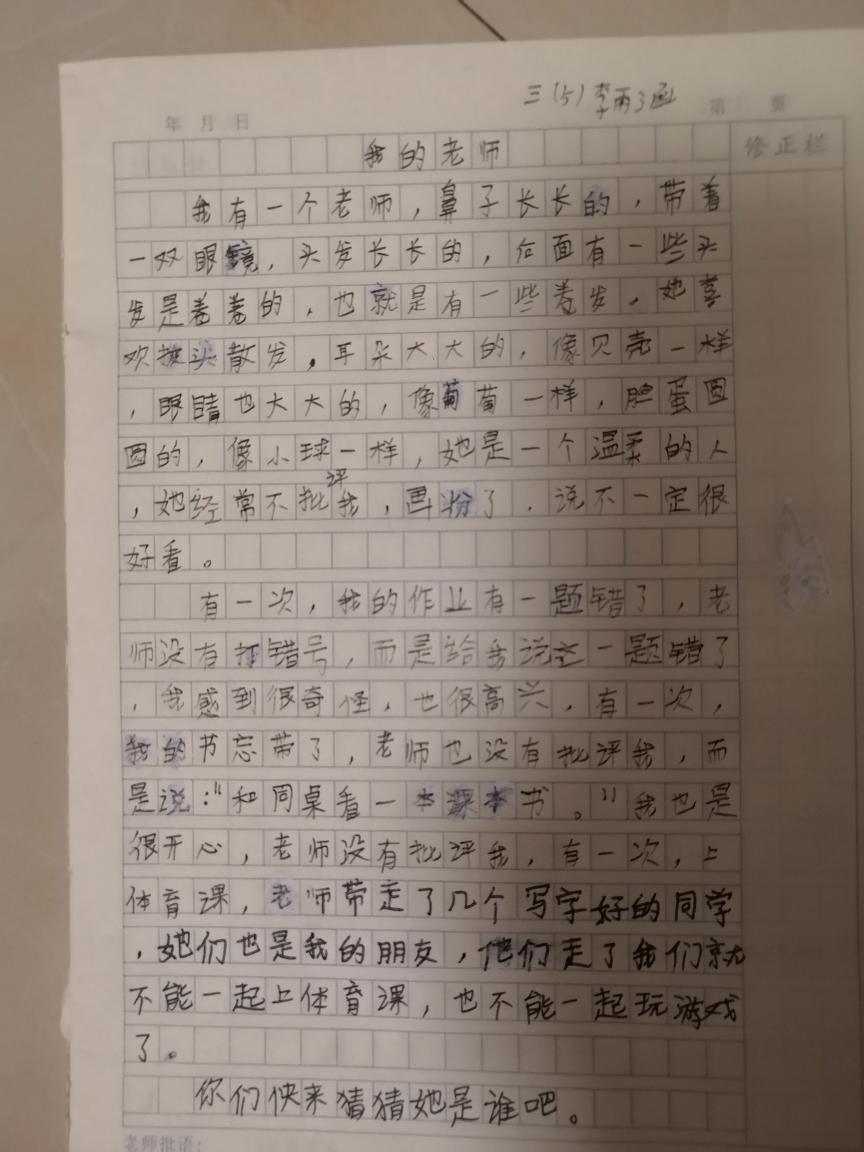 三（5）李雨涵
年 月 日 第 页
我的老师
修正栏
我有一个老师，鼻子长长的，带着
一双眼镜，头发长长的，后面有一些头
发是卷卷的，也就是有一些卷发，她喜
欢披头散发，耳朵大大的，像贝壳一样
，眼睛也大大的，像葡萄一样，脸蛋圆
圆的，像小球一样，她是一个温柔的人
，她经常不批评我，再扮了，说不一定很
好看。
有一次，我的作业有一题错了，老
师没有打错号，而是给我说这一题错了
，我感到很奇怪，也很高兴，有一次，
我的书忘带了，老师也没有批评我，而
是说："和同桌看一本课本书。"我也是
很开心，老师没有批评我，有一次，上
体育课，老师带走了几个写字好的同学
，她们也是我的朋友，他们走了我们就
不能一起上体育课，也不能一起玩游戏
了。
你们快来猜猜她是谁吧。
老师批语：